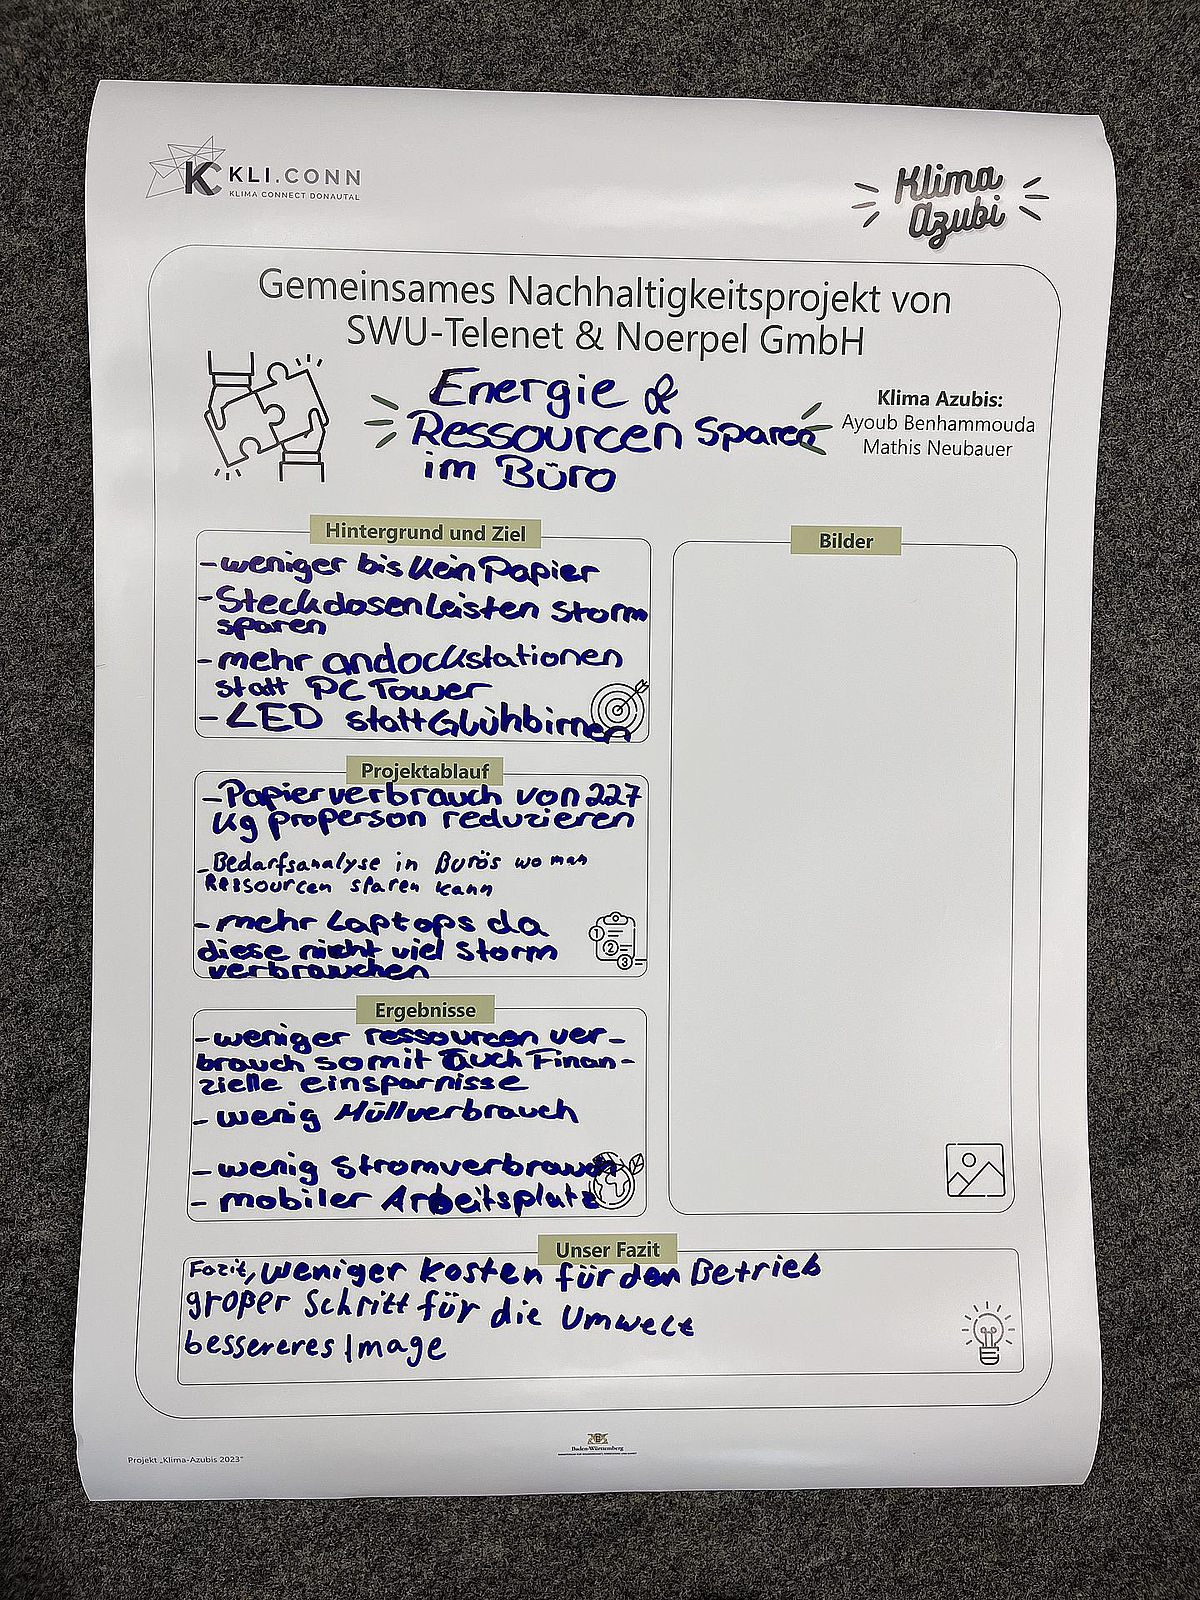 KC KLI.CONN
KLIMA CONNECT DONAUTAL
Klima
Azubi
Gemeinsames Nachhaltigkeitsprojekt von
SWU-Telenet & Noerpel GmbH
Energie &
Ressourcen Sparen
im Büro
Klima Azubis:
Ayoub Benhammouda
Mathis Neubauer
Hintergrund und Ziel
- weniger bis kein Papier
- Steckdosenleisten Storm
sparen
- mehr andockstationen
statt PC Tower
- LED statt Glühbirnen
Bilder
Projektablauf
- Papierverbrauch von 227
kg proPerson reduzieren
- Bedarfsanalyse in Burös wo man
Ressourcen sparen kann
- mehr Laptops da
diese nicht viel Storm
verbrauchen
1
2
3
Ergebnisse
- weniger ressourcen ver-
brauch somit auch Finan-
zielle einsparnisse
- wenig Müllverbrauch
- wenig Stromverbrauch
- mobiler Arbeitsplatz
Unser Fazit
Fazit, weniger kosten für den Betrieb
großer Schritt für die Umwelt
bessereres Image
Baden-Württemberg
Projekt „Klima-Azubis 2023"